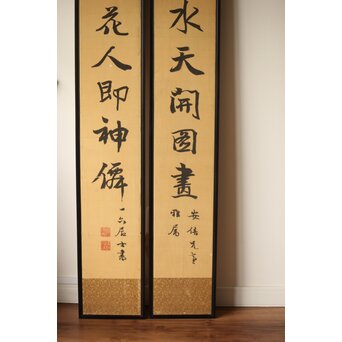 水天開図畫
安倍先生
雅属
花人即神僊
一六居士書